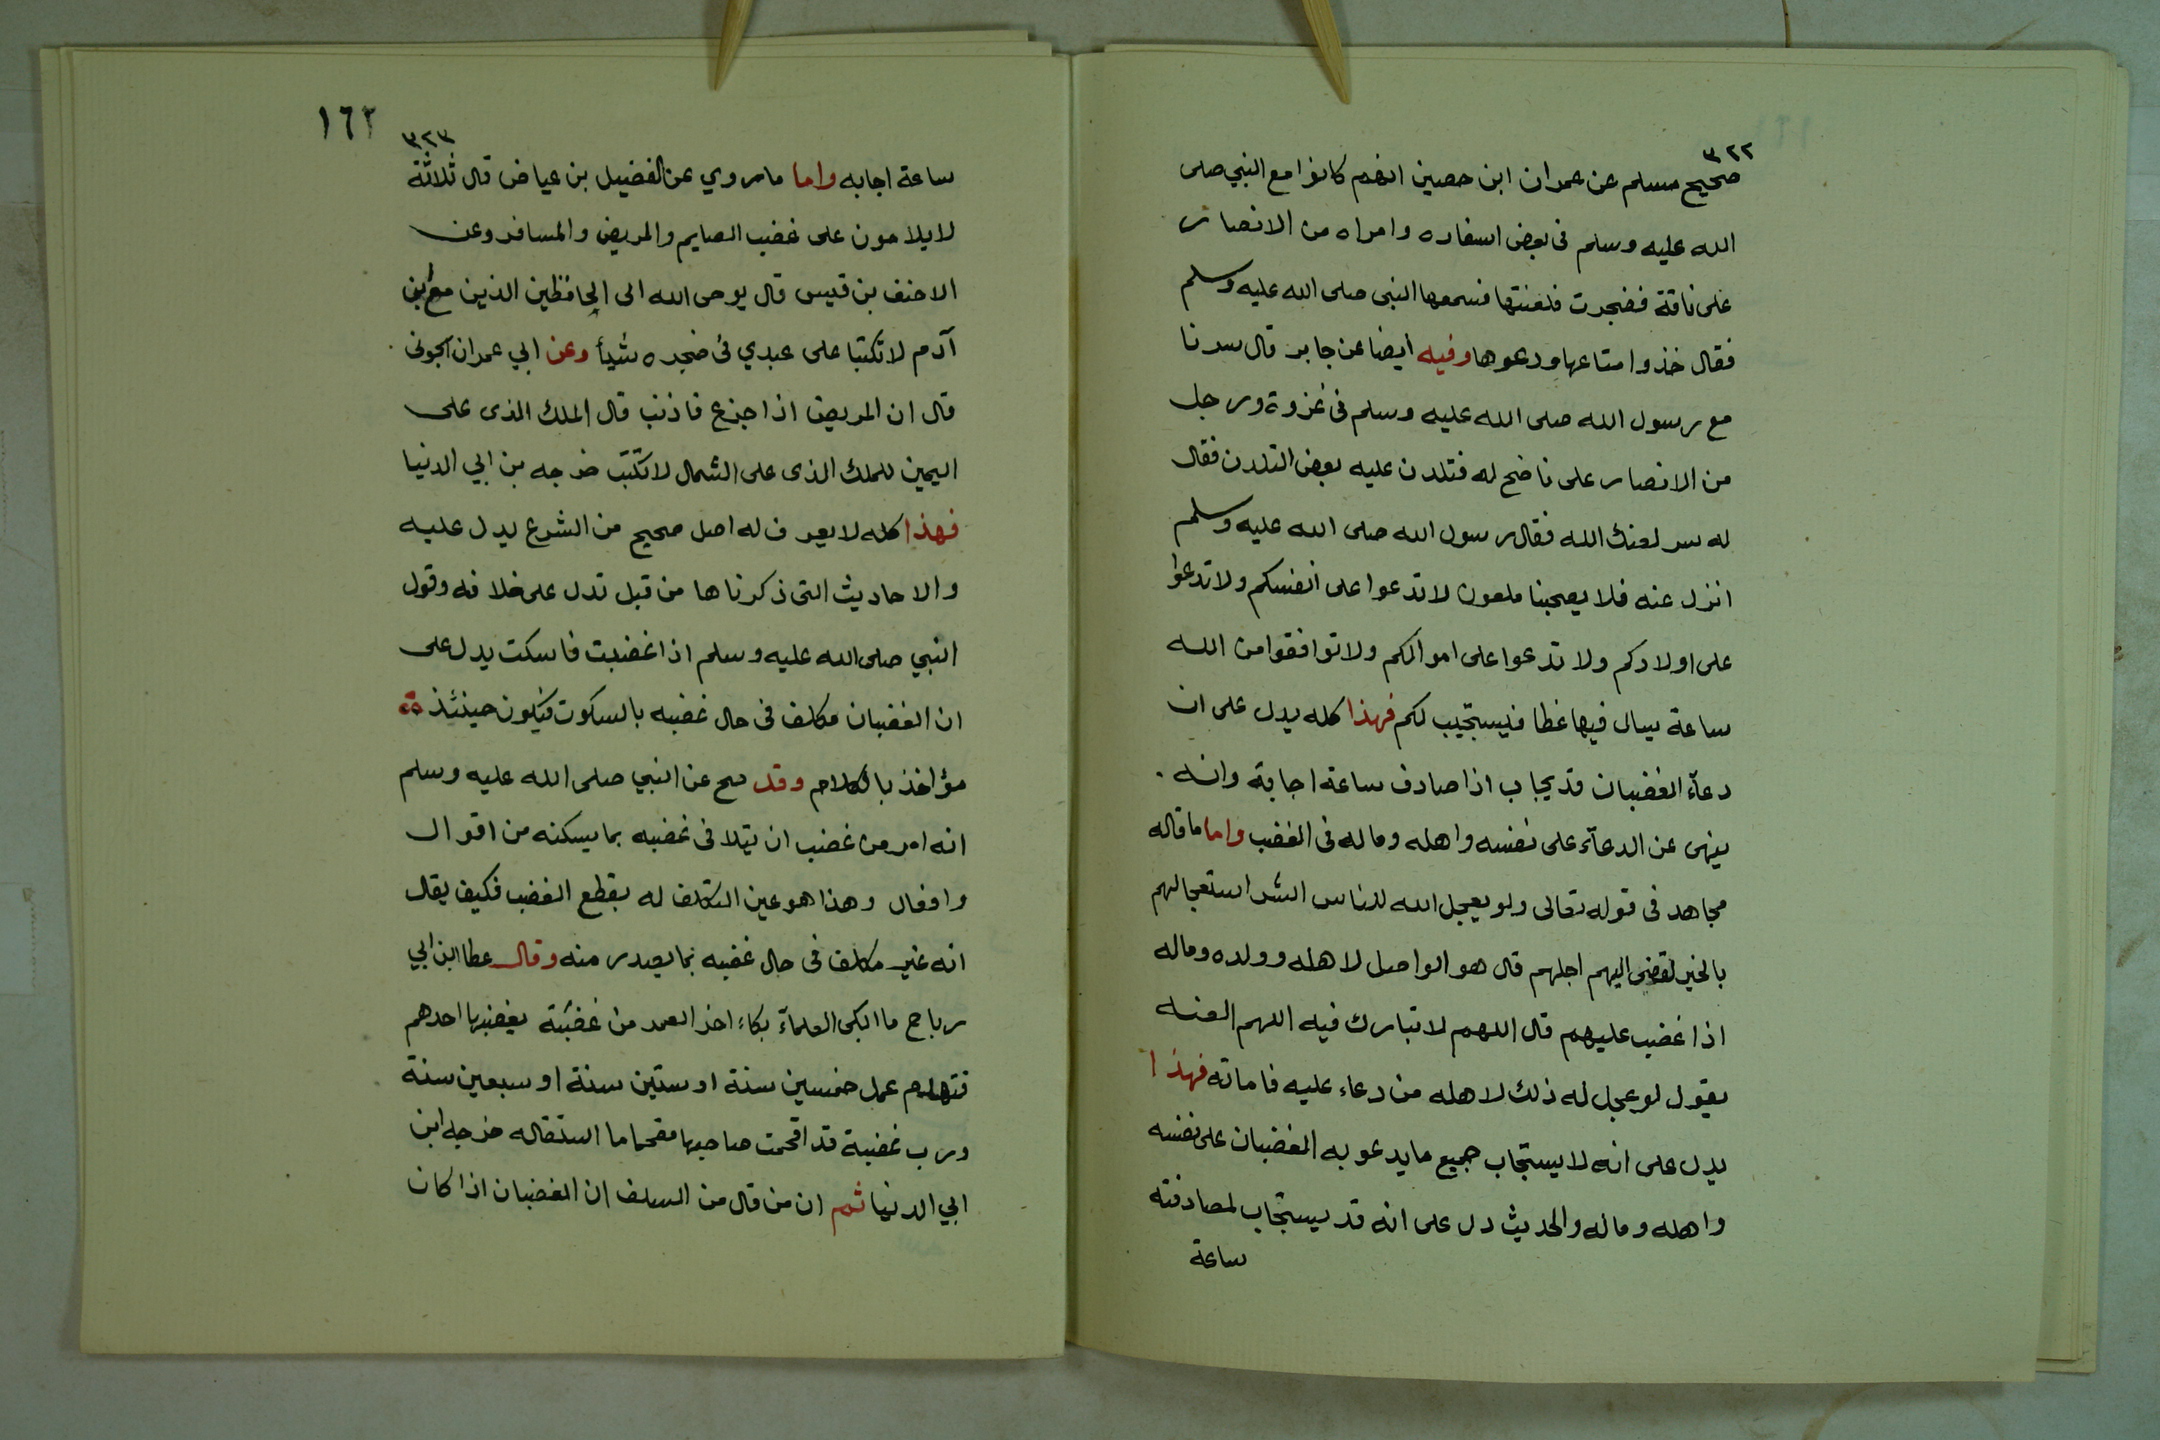 ٣٢٢
صحيح مسلم عن عمران ابن حصين انهم كانوا مع النبي صلى
الله عليه وسلم فى بعض اسفاره وامراه من الانصار
على ناقة فضجرت فلعنتها فسمعها النبى صلى الله عليه وسلم
فقال خذوا متاعها ودعوها وفيه أيضا عن جابر قال سرنا
مع رسول الله صلى الله عليه وسلم فى غزوة ورجل
من الانصار على ناضح له فتلدن عليه بعض التلدن فقال
له سر لعنك الله فقال رسول الله صلى الله عليه وسلم
انزل عنه فلا يصحبنا ملعون لا تدعوا على انفسكم ولا تدعوا
على اولادكم ولا تدعوا على اموالكم ولا توافقوا من الله
ساعة يسال فيها عطا فيستجيب لكم فهذا كله يدل على ان
دعآء الغضبان قد يجاب اذا صادف ساعة اجابة وانه
ينهى عن الدعآء على نفسه واهله وماله فى الغضب واما ما قاله
مجاهد فى قوله تعالى ولو يعجل الله للناس الشر استعجالهم
بالخير لقضى اليهم اجلهم قال هو الواصل لاهله وولده وماله
اذا غضب عليهم قال اللهم لا تبارك فيه اللهم العنه
يقول لو عجل له ذلك لاهله من دعاء عليه فاماته فهذا
يدل على انه لا يستجاب جميع ما يدعو به الغضبان على نفسه
واهله وماله والحديث دل على انه قد يستجاب لمصادفته
ساعة
١٦٢
٣٢٣
ساعة اجابه واما ما روي عن الفضيل بن عياض قال ثلاثة
لا يلامون على غضب الصايم والمريض والمسافر وعن
الاحنف بن قيس قال يوحى الله الى الحافظين الذين مع ابن
آدم لا تكتبا على عبدي فى ضجره شيأ وعن ابي عمران الجونى
قال ان المريض اذا جزع فاذنب قال الملك الذى على
اليمين للملك الذى على الشمال لا تكتب خرجه بن ابي الدنيا
فهذا كله لا يعرف له اصل صحيح من الشرع يدل عليه
والاحاديث التى ذكرناها من قبل تدل على خلافه وقول
النبي صلى الله عليه وسلم اذا غضبت فاسكت يدل على
ان الغضبان مكلف فى حال غضبه بالسكوت فيكون حينئذ
مؤاخذ بالكلام وقد صح عن النبي صلى الله عليه وسلم
انه امر من غضب ان يتلافى غضبه بما يسكنه من اقوال
وافعال وهذا هو عين التكلف له بقطع الغضب فكيف يقال
انه غير مكلف فى حال غضبه بما يصدر منه وقال عطا ابن ابي
رباح ما ابكى العلمآء بكاء اخذ العمد من غضبة يغضبها احدهم
فتهدم عمل خمسين سنة او ستين سنة او سبعين سنة
ورب غضبة قد اقحمت صاحبها مقحما ما استقاله خرجه ابن
ابي الدنيا ثم ان من قال من السلف ان الغضبان اذا كان